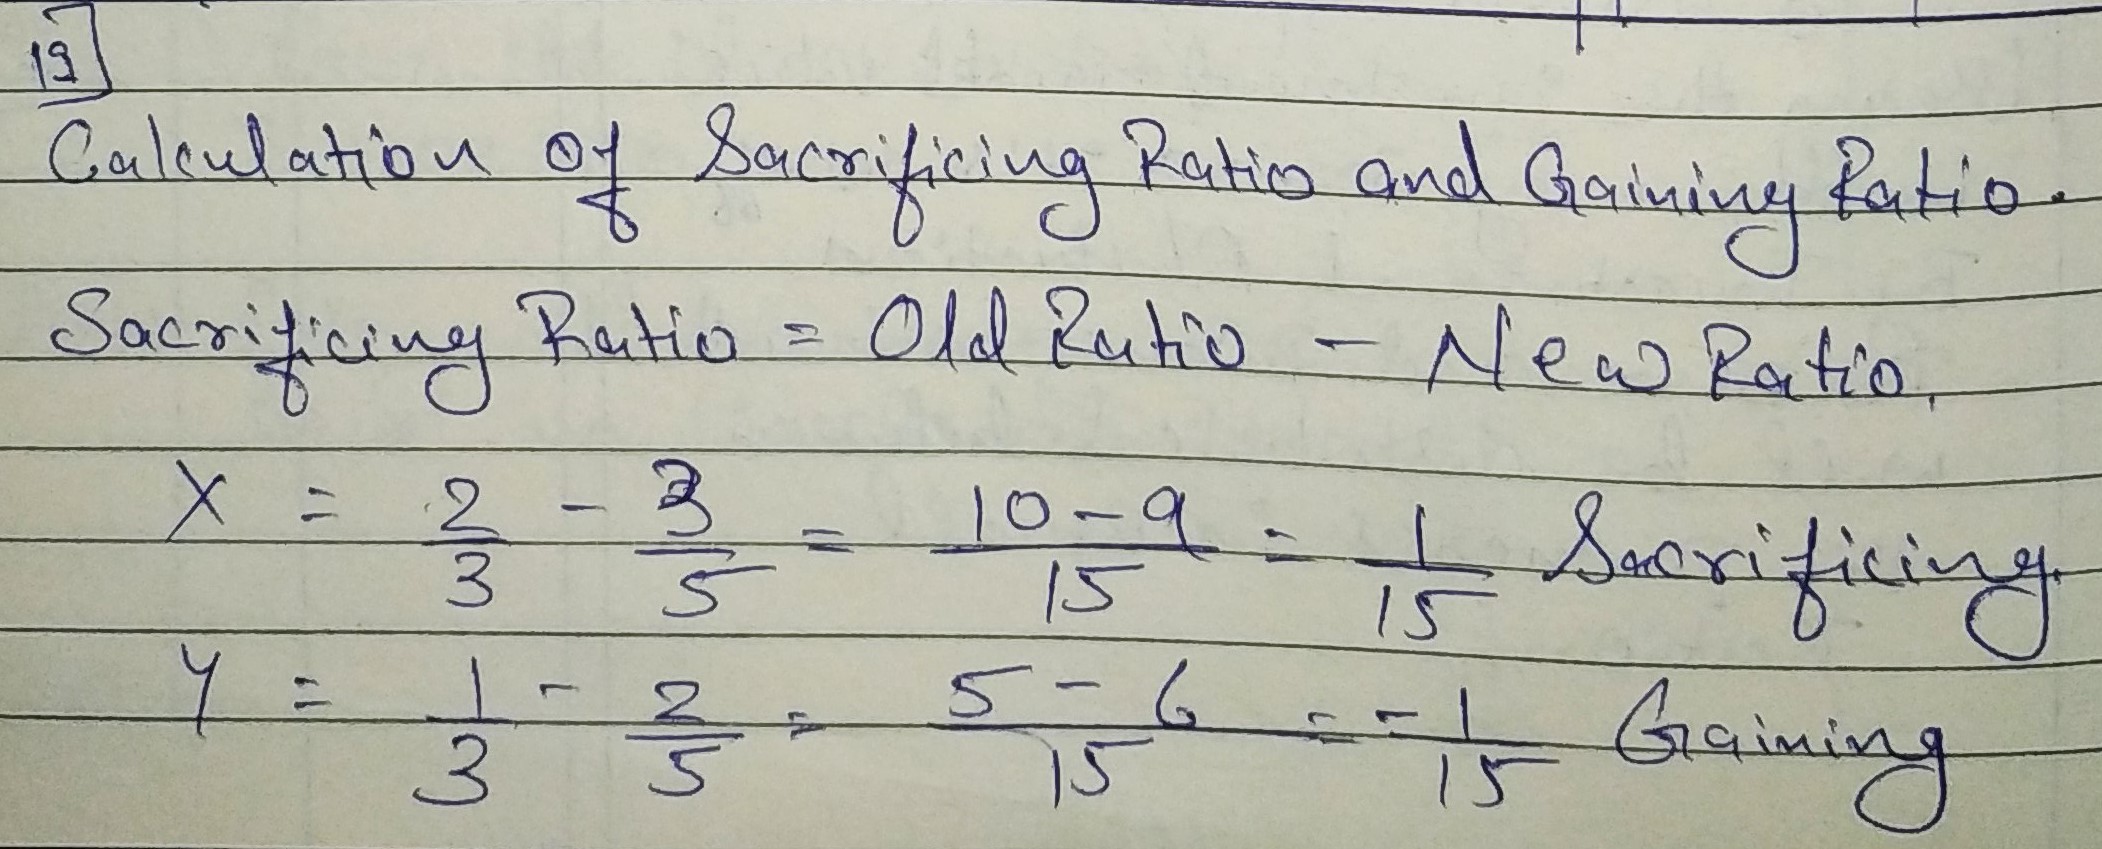 19]
Calculation of Sacrificing Ratio and Gaining Ratio.
Sacrificing Ratio = Old Ratio - New Ratio,
X = 2/3 - 3/5 = 10-9/15 = 1/15 Sacrificing.
Y = 1/3 - 2/5 = 5-6/15 = -1/15 Gaining